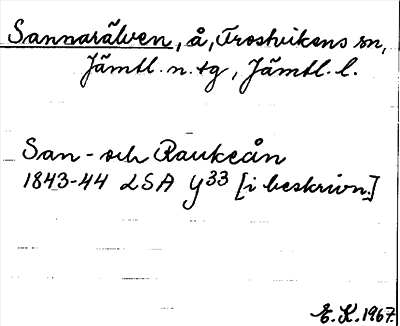 Sannarälven, å, Frostvikens sn,
Jämtl. n. tg, Jämtl. l.
San- och Raukeån
1843-44 LSA Y33 [i beskrivn.]
E. K. 1967.